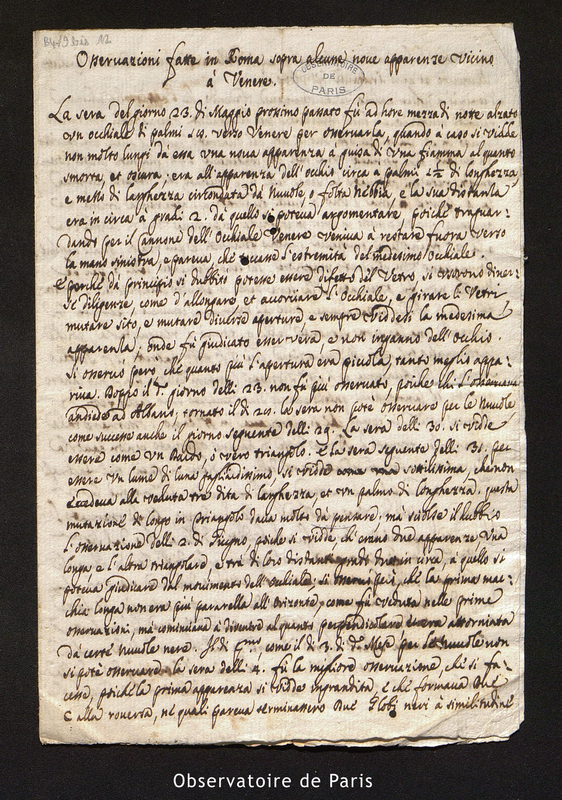 Osservazioni fatte in Roma sopra alcune noue apparenze Vicino
à Venere.
OBSERVATOIRE
DE
PARIS
La sera del giorno 23. di Maggio prossimo passato fù ad hore mezza di notte alzato
un occhiale di palmi verso Venere per osseruarla, quando à caso si vidde
non molto lungi da essa vna noua apparenza à guisa di Vna fiamma alquanto
smorta, et oscura: era all'apparenza dell'occhio circa à palmi di longhezza
e mezzo di larghezza circondata dà Nuuole, o folta nebbia, e la sua distanza
era in circa à gradi 2. da quello si poteua argomentare, poiche traguar:
dando per il cannone dell'Occhiale Venere veniua à restare fuora verso
la mano sinistra, e pareua, che l'estremità del medesimo Occhiale.
E perche dà principio si dubbitò potesse essere difetto del Vetro, si diuer:
se diligenze, come d'allongare, et accortiare l'Occhiale, e girare li Vetri
mutare sito, e mutare diuerse aperture, e sempre viddesi la medesima
apparenza, onde fù giudicato esser vera, e non inganno dell'occhio.
Si osseruò però che quanto più l'apertura era picciola, tanto meglio appa:
riua. Doppo il giorno delli 23. non fù più osseruato, poiche chi l'osseruaua
andiede ad Albano, tornato il dì la sera non potè osseruare per le Nuuole
come successe anche il giorno seguente delli 29. La sera delli 30. si vidde
essere come un ò vero triangolo. E la sera seguente delli 31. per
essere un lume di luna gagliardissimo, si vidde sottilissima, che non
eccedeua alla veduta trè dita di larghezza, et un palmo di longhezza. questa
mutazione di longo in triangolo daua molto dà pensare: mà sciolse il dubbio
l'osseruatione delli 2. di Giugno, poiche si vidde che erano due apparenze Vna
longa, e l'altra triangolare, e trà di loro distanti gradi due in circa, à quello si
poteua giudicare dal mouimento dell'Occhiale: si osseruò però, che la prima mac:
chia longa non era più paralella all'Orizonte, come fù veduta nelle prime
osseruazioni, mà cominciaua à diuenire alquanto perpendicolare et era attorniata
dà certe nuuole nere. Il dì come il dì 3. di Mese per le Nuuole non
si potè osseruare. la sera delli 4. fù la migliore osseruazione, che si fa:
cesse, poiche la prima apparenza si vidde ingrandita, e che formaua due
C alla rouersa, nè quali pareua terminassero due Globi neri à similitudine
Observatoire de Paris